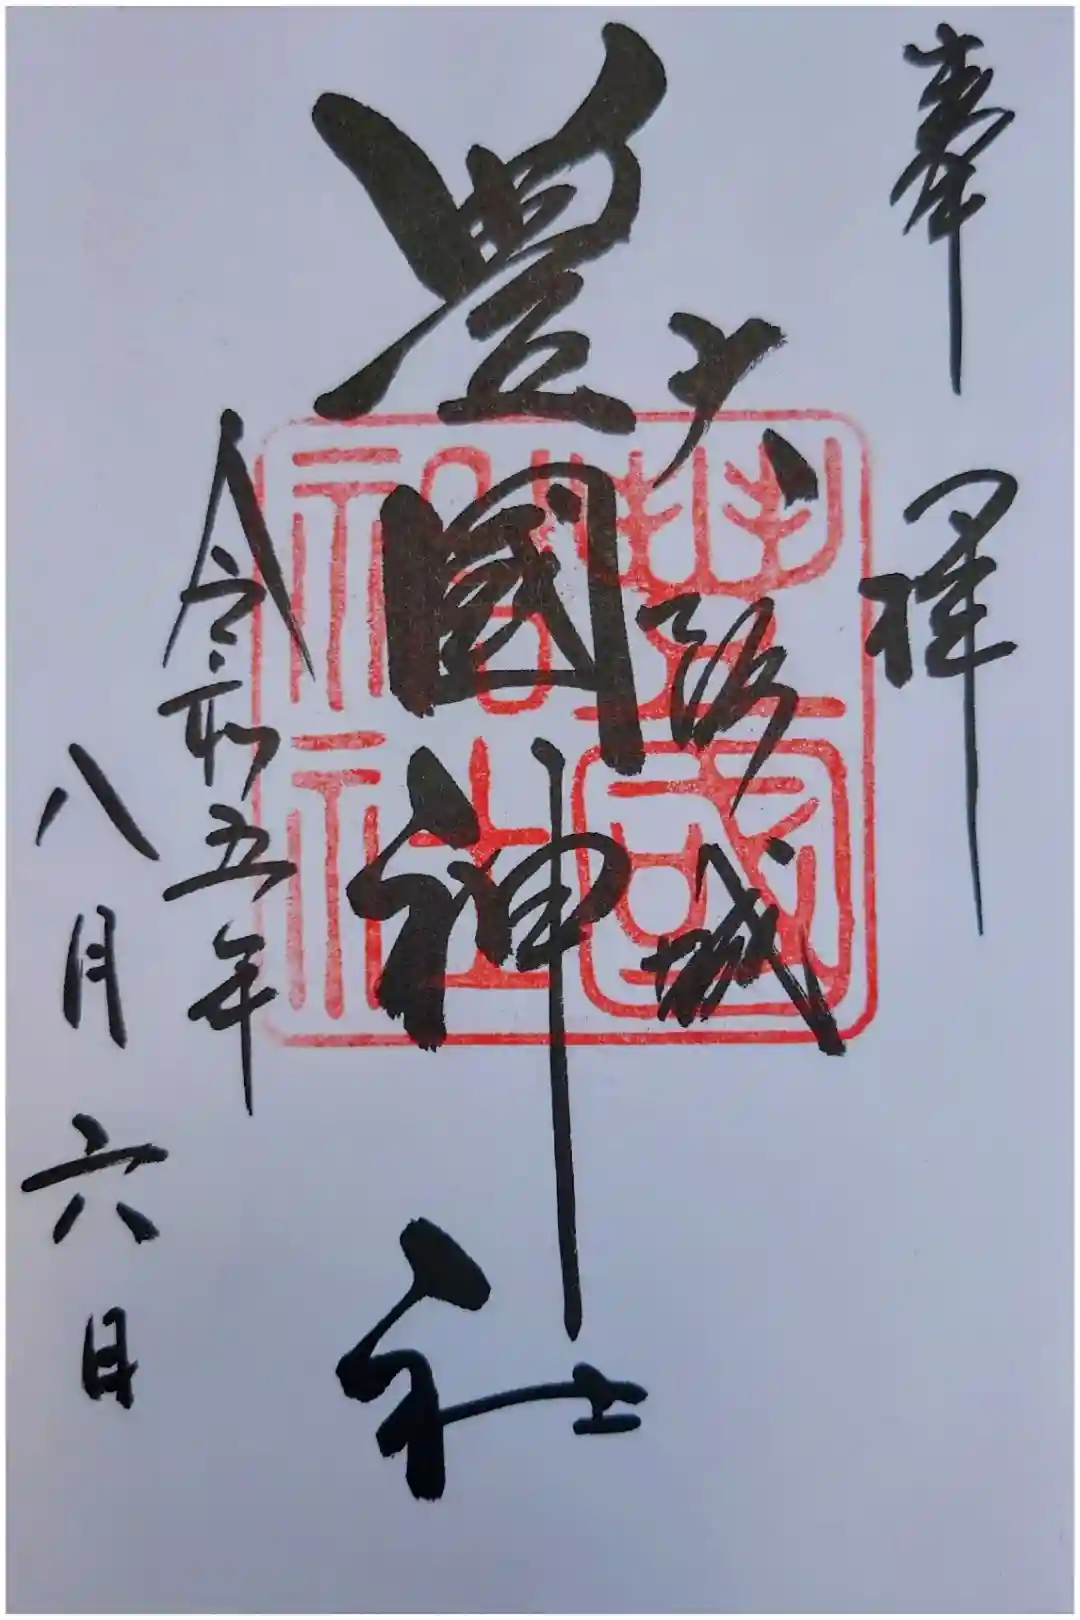 奉拝
大阪城
豊國神社
令和五年
八月六日
豐國
神社